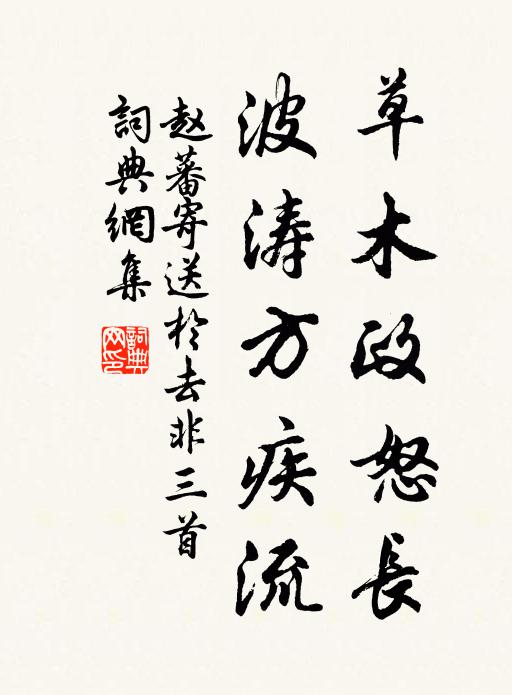 草木政怒長
波涛方疾流
赵蕃寄送於去非三首
詞典網集
詞典网印